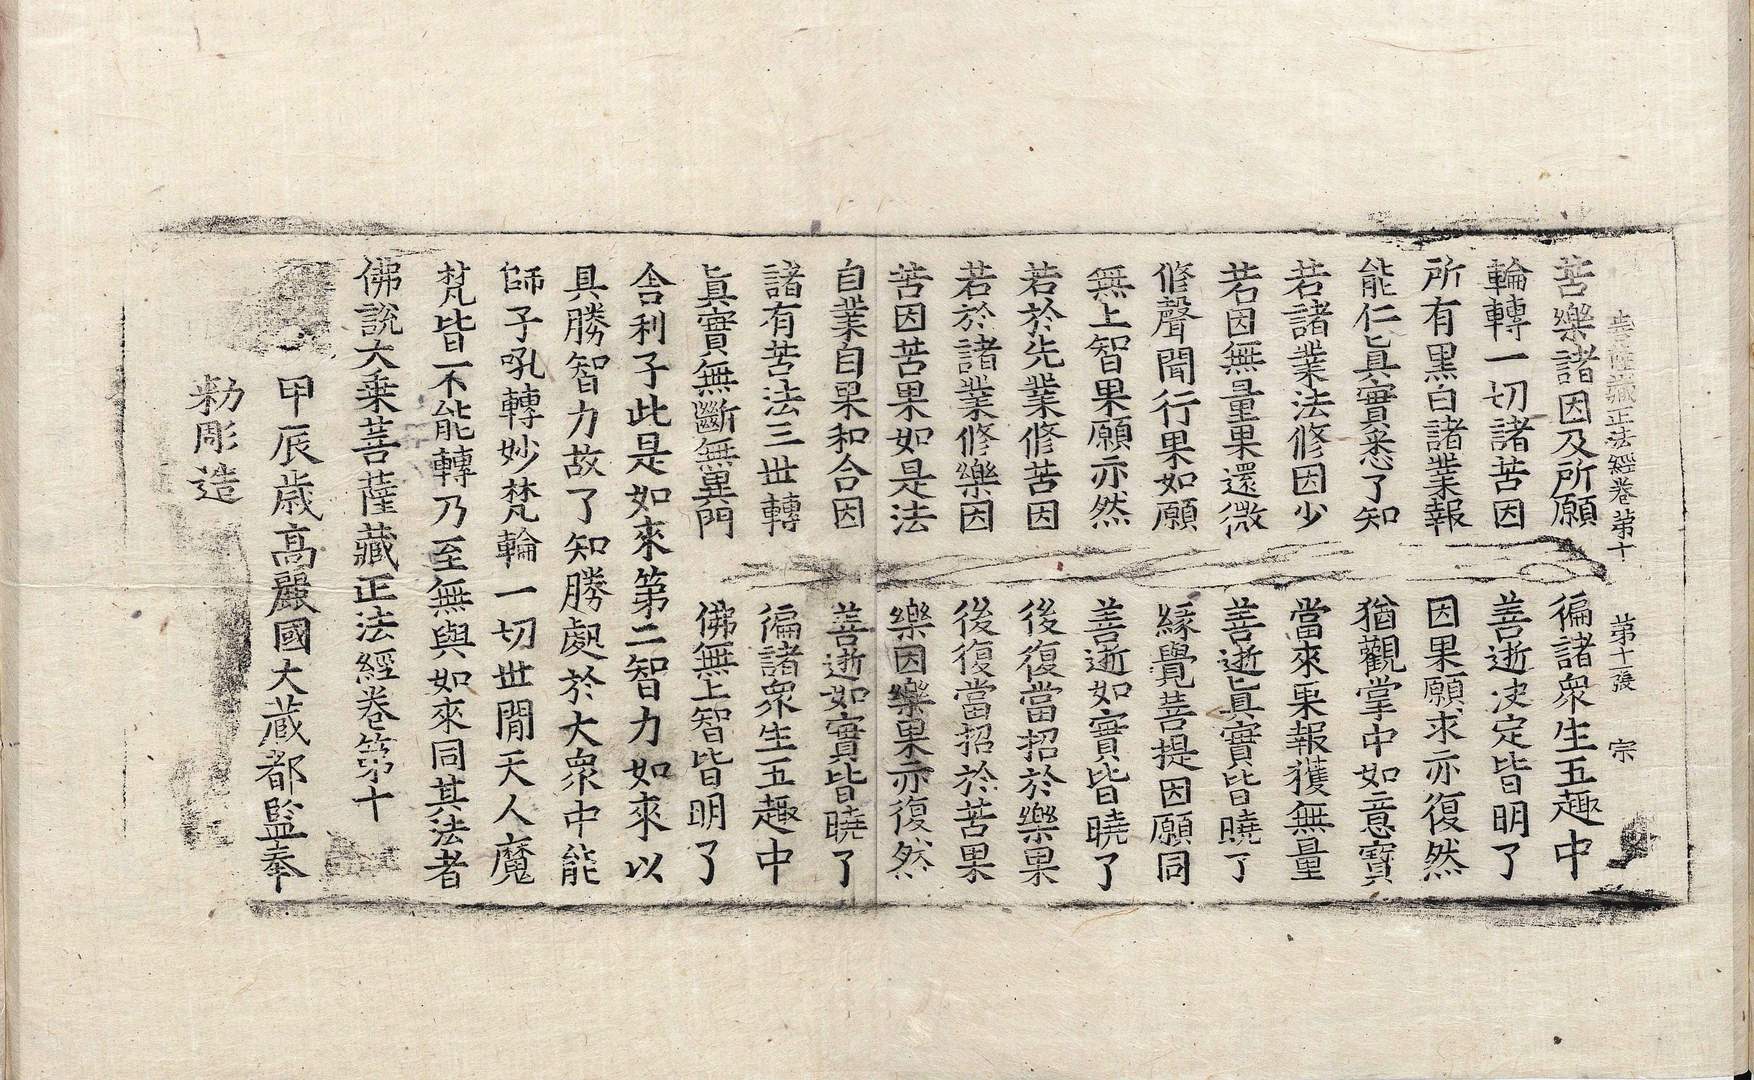 菩薩藏正法經卷第十　第十張　宗
苦樂諸因及所願　徧諸衆生五趣中
輪轉一切諸苦因　善逝决定皆明了
所有黑白諸業報　因果願求亦復然
能仁眞實悉了知　猶觀掌中如意寶
若諸業法修因少　當來果報獲無量
若因無量果還微　善逝眞實皆曉了
修聲聞行果如願　緣覺菩提因願同
無上智果願亦然　善逝如實皆曉了
若於先業修苦因　後復當招於樂果
若於諸業修樂因　後復當招於苦果
苦因苦果如是法　樂因樂果亦復然
自業自果和合因　善逝如實皆曉了
諸有苦法三世轉　徧諸衆生五趣中
眞實無斷無異門　佛無上智皆明了
舍利子此是如來第二智力如來以
具勝智力故了知勝處於大衆中能
師子吼轉妙梵輪一切世間天人魔
梵皆不能轉乃至無與如來同其法者
佛說大乘菩薩藏正法經卷第十
甲辰歲高麗國大藏都監奉
勑彫造